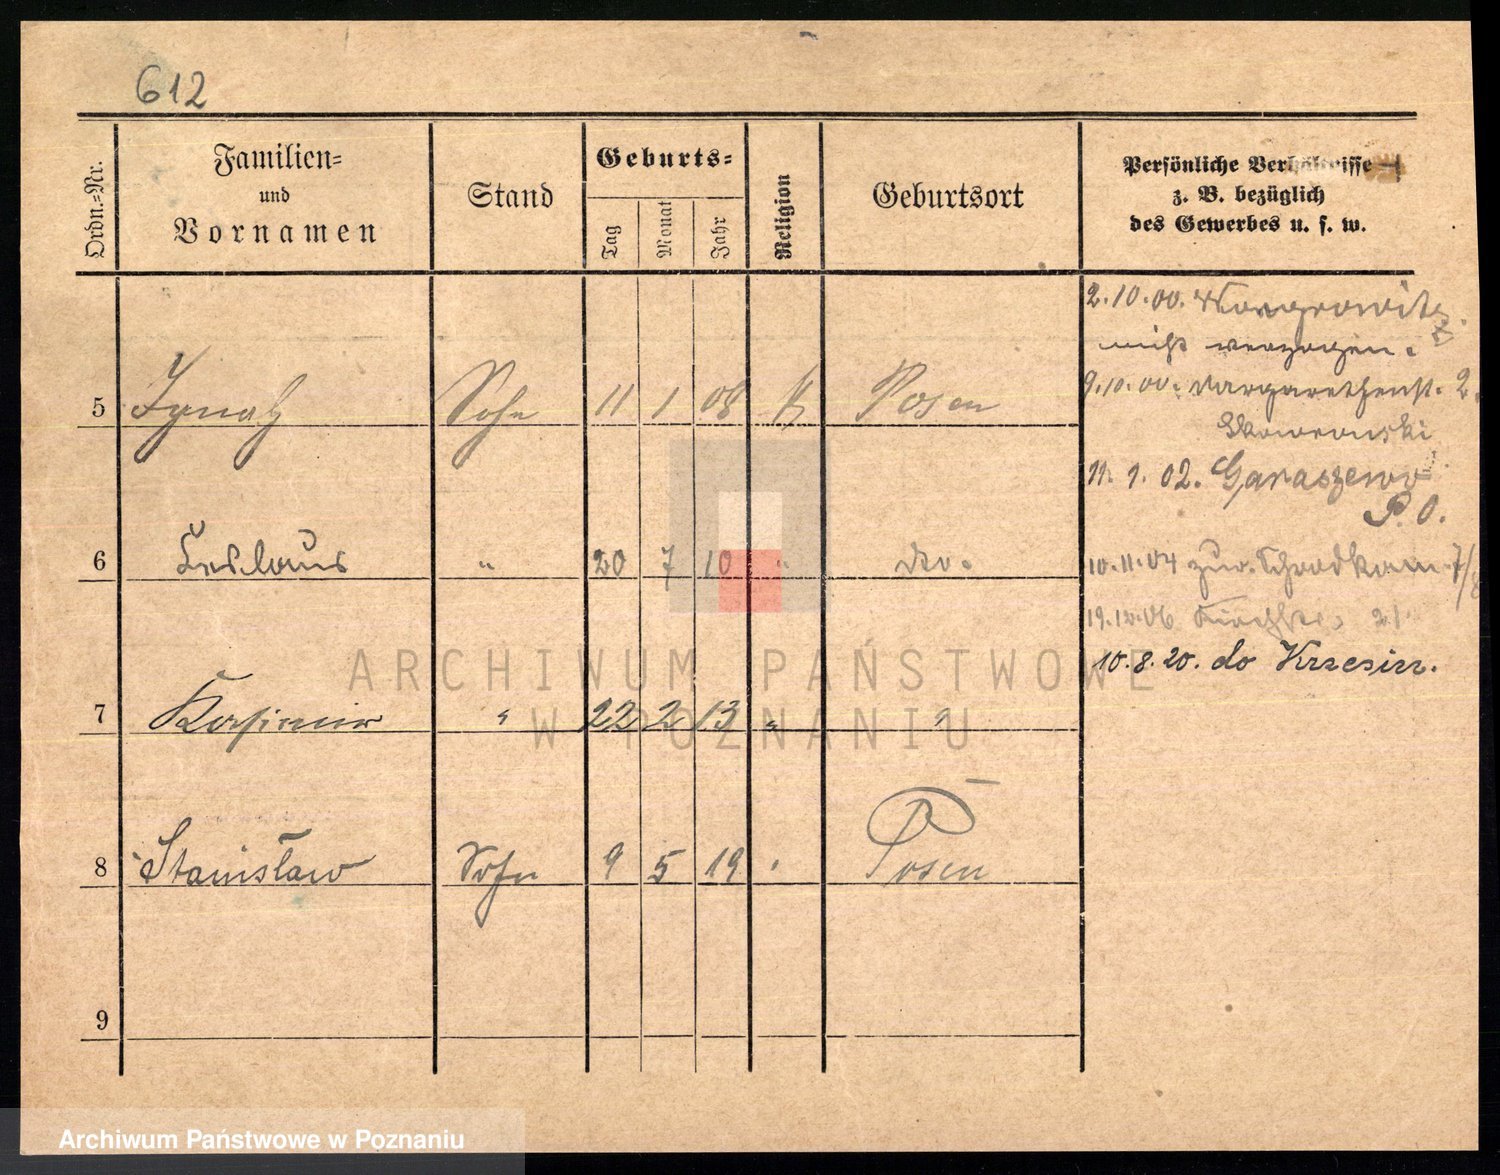 612
Ordn.-Nr.
Familien-
und
Vornamen
Stand
Geburts-
Tag
Monat
Jahr
Religion
Geburtsort
Persönliche Verhältnisse
z. B. bezüglich
des Gewerbes u. s. w.
2.10.00. Wongrowitz
nicht verzogen.
5 Ignatz Sohn 11 1 08 k Posen
9.10.00. Margarethenst. 2.
Skowronski
11.1.02. Garaszewo
P. O.
6 Ceslaus " 20 7 10 " do.
10.11.04 zur. Schrodkam. 7/8
19.12.06 21
10.8.20. do Krzesin.
7 Kasimir " 22 2 13 " "
8 Stanisław Sohn 9 5 19 " Posen
9
ARCHIWUM PAŃSTWOWE
W POZNANIU
Archiwum Państwowe w Poznaniu